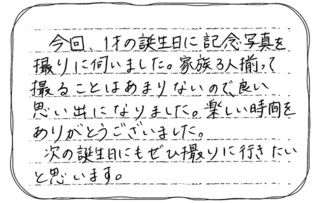 今回、1才の誕生日に記念写真を
撮りに伺いました。家族3人揃って
撮ることはあまりないので、良い
思い出になりました。楽しい時間を
ありがとうございました。
次の誕生日にもぜひ撮りに行きたい
と思います。